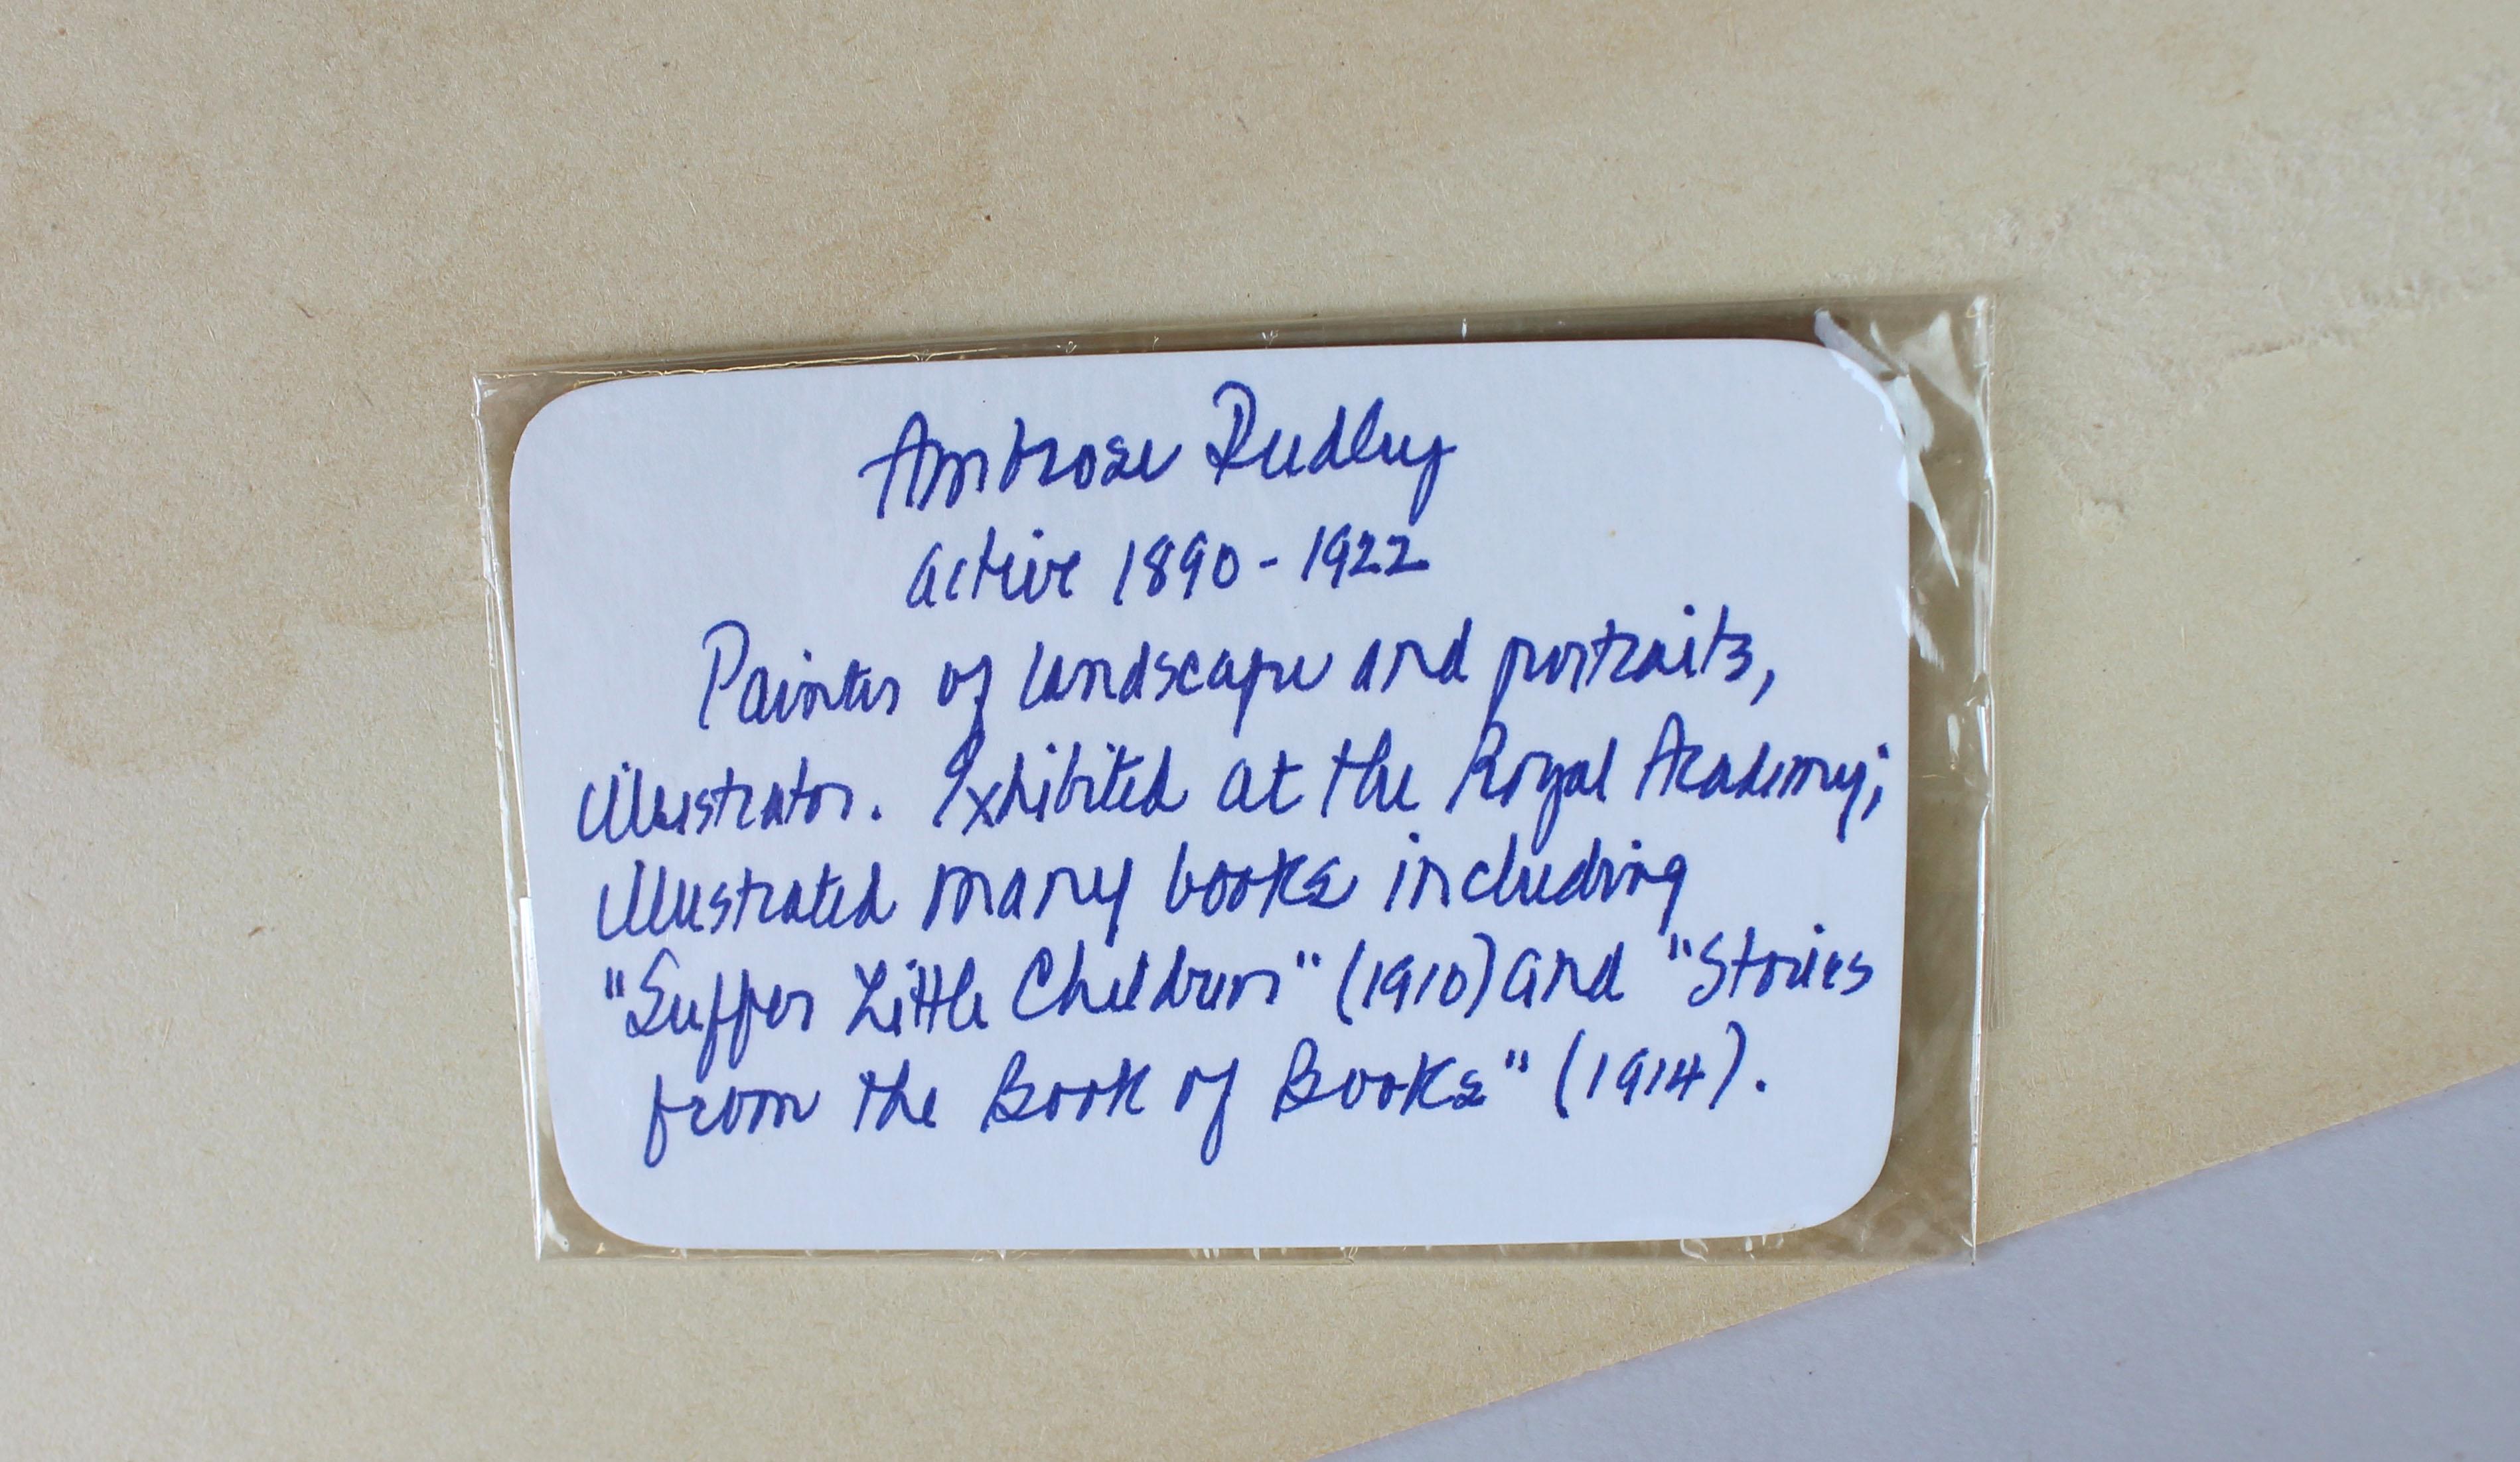 Ambrose Dudley
active 1890-1922
Painter of landscape and portraits,
illustrator. Exhibited at the Royal Academy;
illustrated many books including
"Suffer Little Children" (1910) and "Stories
from the Book of Books" (1914).